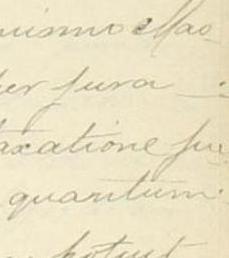 uismo Mao
er jura
axatione fu
quantum
potuit